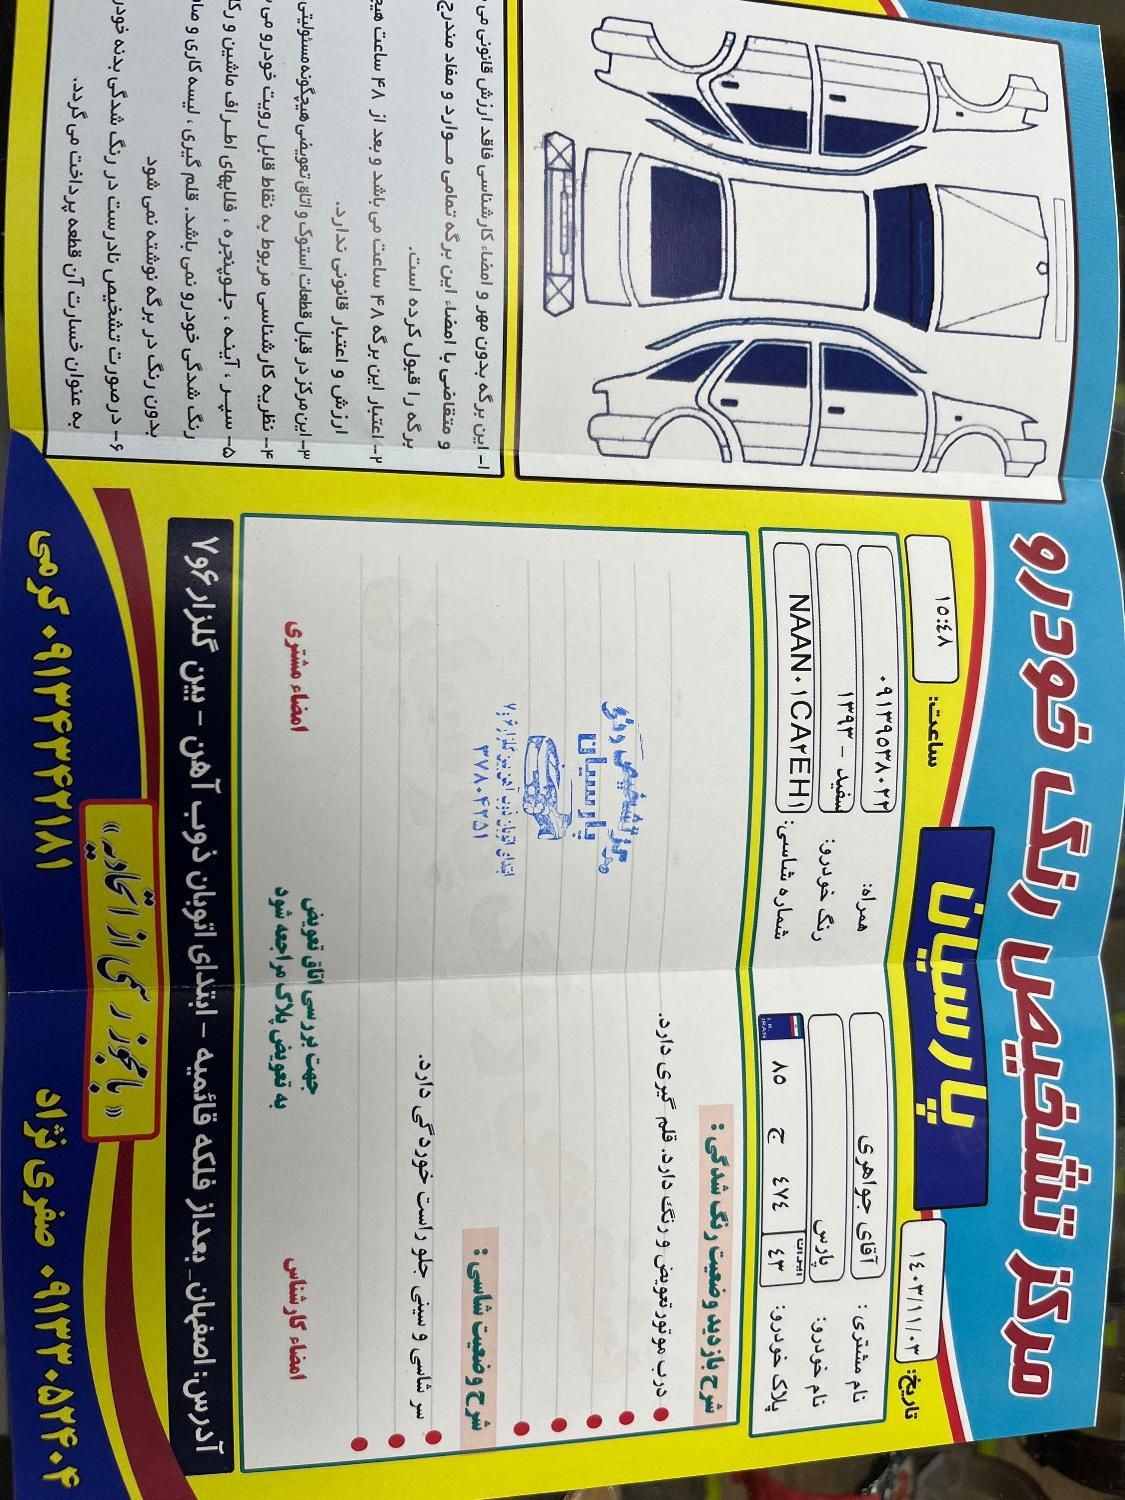 مرکز تشخیص رنگ خودرو
پارسیان
تاریخ: ۱۴۰۳/۱۱/۰۳
ساعت: ۱۵:۴۸
نام مشتری: آقای جواهری
همراه: ۰۹۱۳۹۵۳۸۰۲۲
نام خودرو: پارس
رنگ خودرو: سفید - ۱۳۹۳
پلاک خودرو: ایران ۴۳ ۴۷۴ ج ۸۵
I.R. IRAN
شماره شاسی: NAAN۰۱CA۲EH۱
شرح بازدید وضعیت رنگ شدگی:
درب موتور تعویض و رنگ دارد. قلم گیری دارد.
مرکز تشخیص رنگ
پارسیان
ابتدای اتوبان ذوب آهن بین گلزار ۶و۷
۳۷۸۰۴۲۵۱
شرح وضعیت شاسی:
سر شاسی و سینی جلو راست خوردگی دارد.
جهت بررسی اتاق تعویض
به تعویض پلاک مراجعه شود
امضاء کارشناس
امضاء مشتری
آدرس: اصفهان_ بعد از فلکه قائمیه - ابتدای اتوبان ذوب آهن - بین گلزار ۶و۷
«با مجوز رسمی از اتحادیه»
۰۹۱۳۳۰۵۲۴۰۴ صفری نژاد
۰۹۱۳۴۳۴۲۱۸۱ کرمی
۱- این برگه بدون مهر و امضاء کارشناسی فاقد ارزش قانونی می
و متقاضی با امضاء این برگه تمامی موارد و مفاد مندرج
برگه را قبول کرده است.
۲- اعتبار این برگه ۴۸ ساعت می باشد و بعد از ۴۸ ساعت هیچ
ارزش و اعتبار قانونی ندارد.
۳- این مرکز در قبال قطعات استوک و اتاق تعویضی هیچگونه مسئولیتی
۴- نظریه کارشناسی مربوط به نقاط قابل رویت خودرو می
۵- سپر ، آینه ، جلوپنجره ، فلاپهای اطراف ماشین و
رنگ شدگی خودرو نمی باشد. قلم گیری ، لیسه کاری و
بدون رنگ در برگه نوشته نمی شود
۶- در صورت تشخیص نادرست در رنگ شدگی بدنه خودر
به عنوان خسارت آن قطعه پرداخت می گردد.